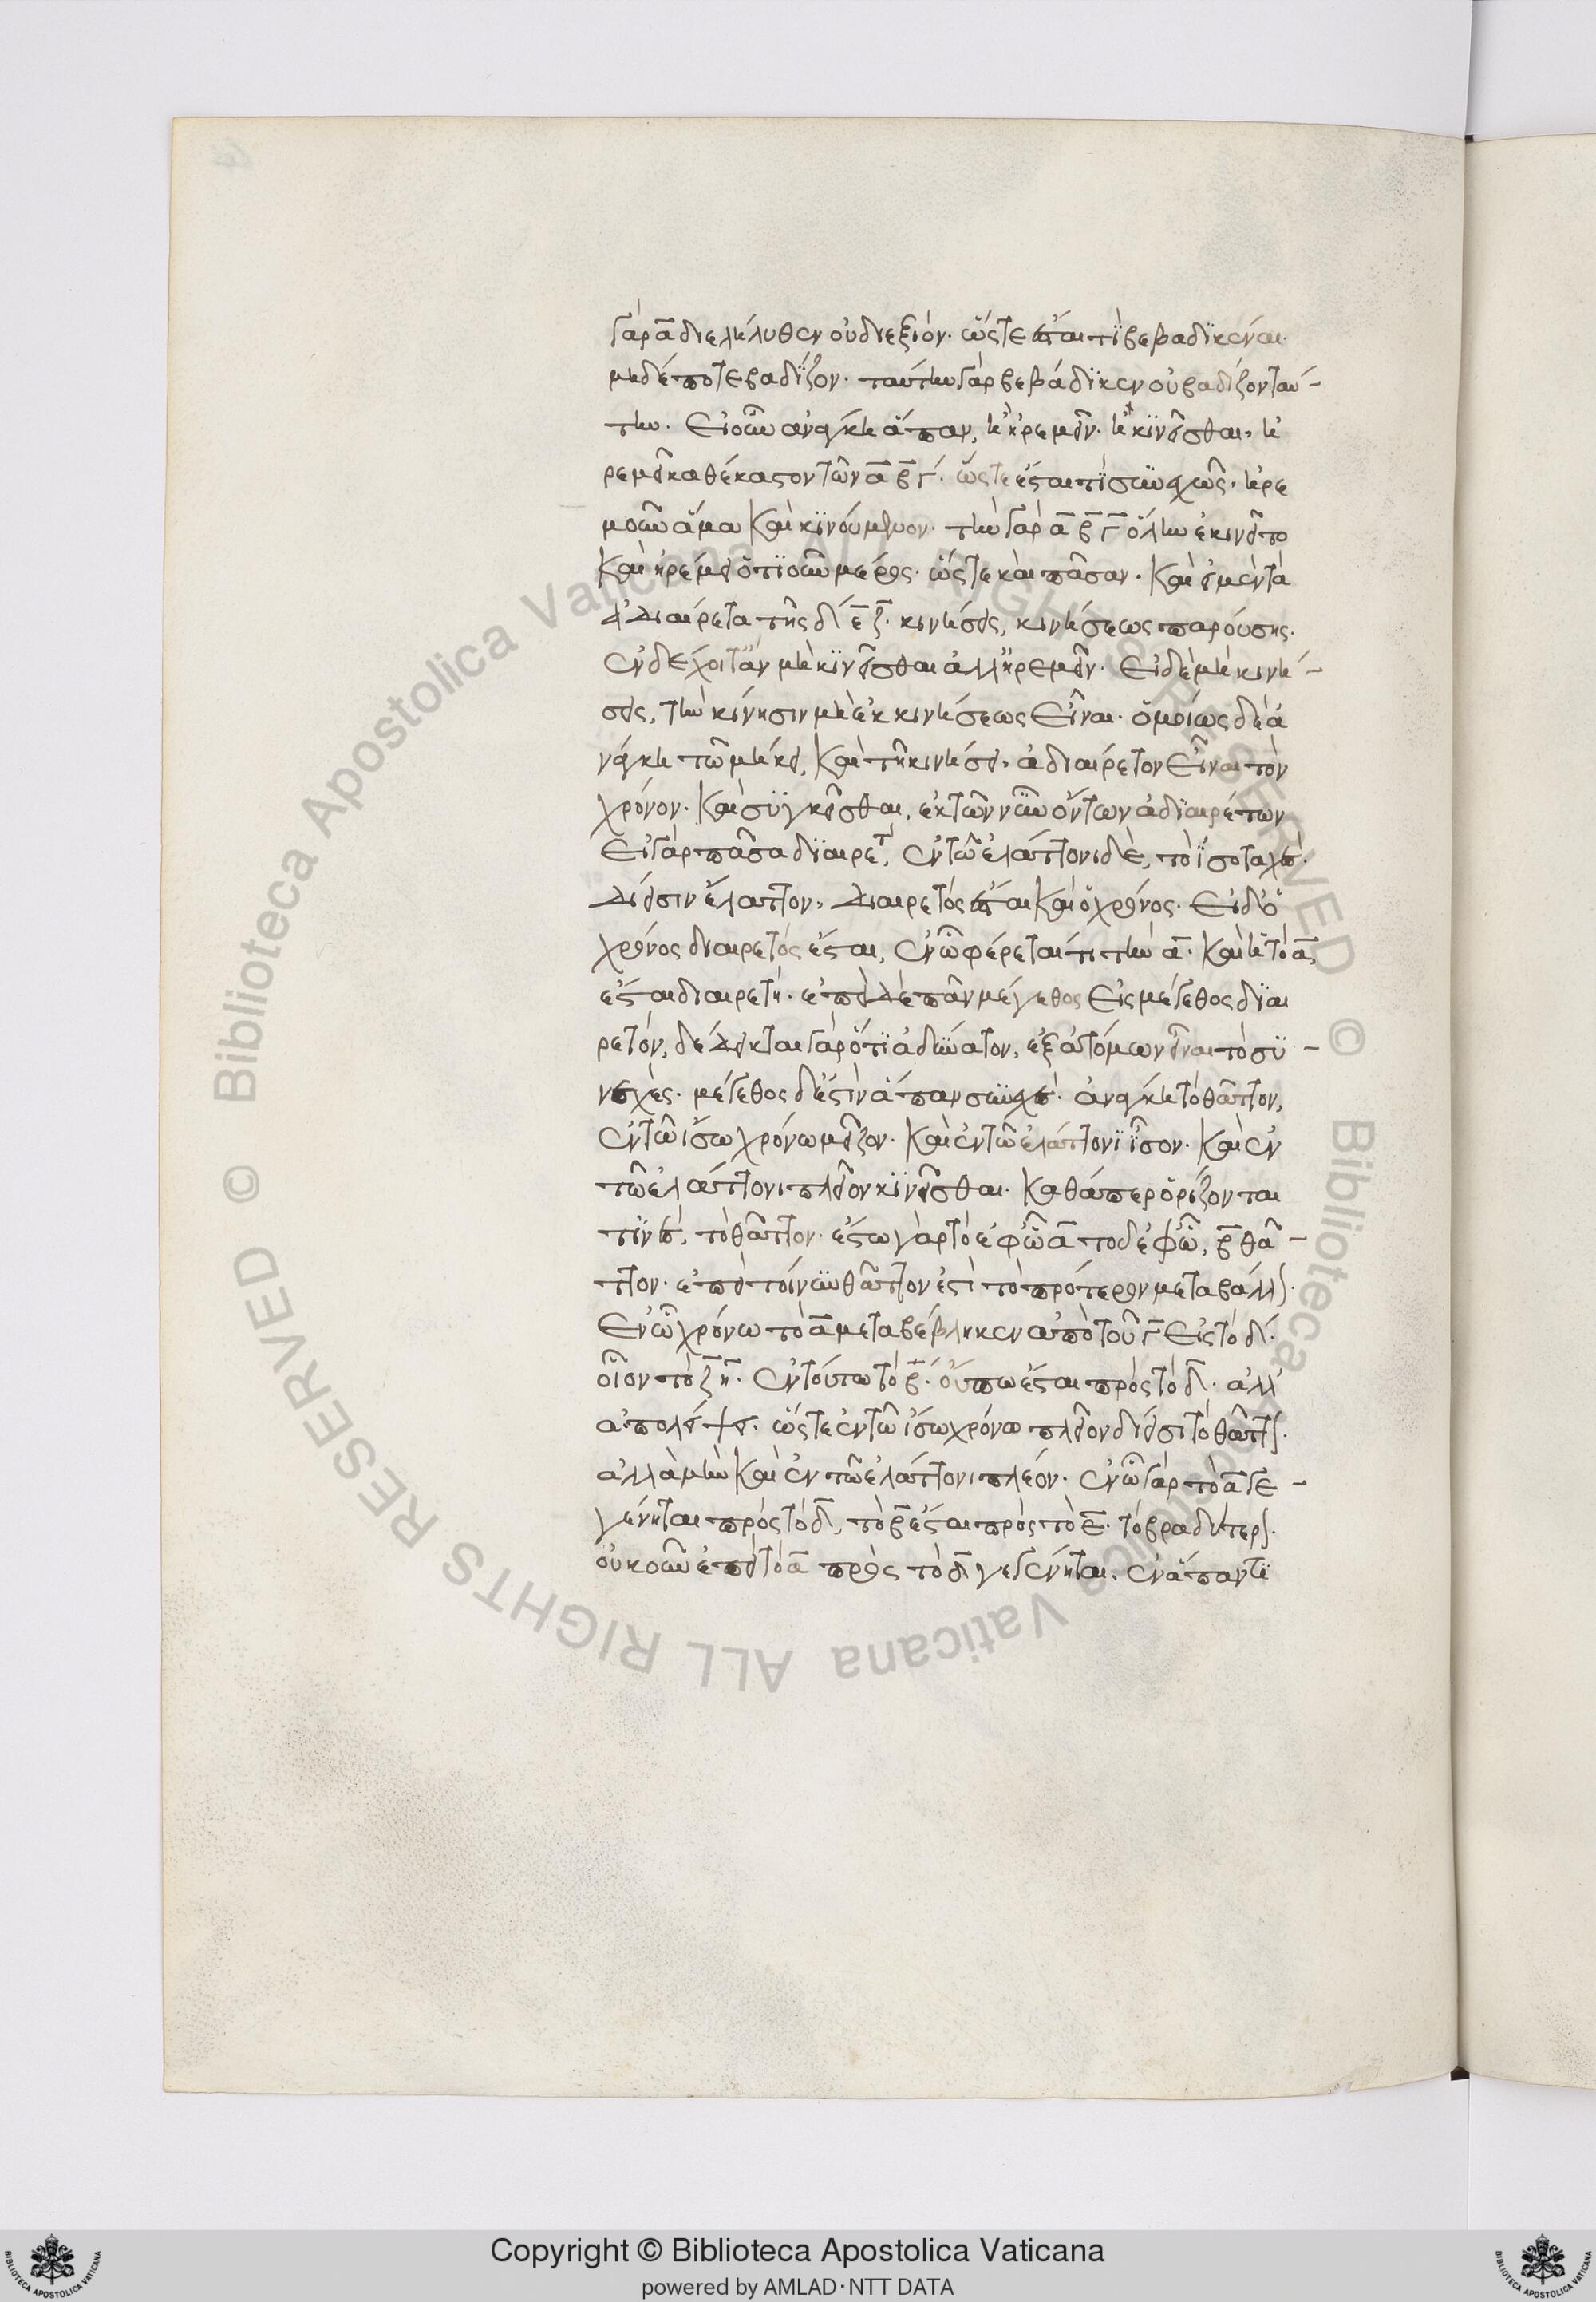 γὰρ ᾱ διελήλυθεν οὐ διεξιόν· ὥστε ἔσται τὶ βεβαδικέναι
μηδέποτε βαδίζον· ταύτην γὰρ βεβάδικεν οὐ βαδίζον ταύ-
την. Εἰ οὖν ἀνάγκη ἅπαν, ἢ ἠρεμεῖν· ἢ κινεῖσθαι, ἠ
ρεμεῖ καθέκαστον τῶν ᾱ β̄ γ̄. ὥστε ἔσται τὶ συνεχῶς, ἠρε
μοῦν ἅμα καὶ κινούμενον· τὴν γὰρ ᾱ β̄ γ̄ ὅλην ἐκινεῖτο
καὶ ἠρέμει ὁτιοῦν μέρος· ὥστε καὶ πᾶσαν· καὶ εἰ μὲν τὰ
ἀδιαίρετα τῆς δ̄ ε̄ ζ̄ κινήσεις, κινήσεως παρούσης·
ἐνδέχοιτ' ἂν μὴ κινεῖσθαι ἀλλ' ἠρεμεῖν· Εἰ δὲ μὴ κινή-
σεις, τὴν κίνησιν μὴ ἐκ κινήσεως εἶναι· ὁμοίως δὲ ἀ
νάγκη τῷ μήκει, καὶ τῇ κινήσει, ἀδιαίρετον εἶναι τὸν
χρόνον· καὶ συγκεῖσθαι, ἐκ τῶν νῦν ὄντων ἀδιαιρέτων
Εἰ γὰρ πᾶσα διαιρετὴ, ἐν τῷ ἐλάττονι δὲ, τὸ ἰσοταχὲς
δίεισιν ἔλαττον, διαιρετὸς ἔσται καὶ ὁ χρόνος· Εἰ δ' ὁ
χρόνος διαιρετός ἔσται, ἐν ᾧ φέρεται τι τὴν ᾱ· καὶ ἡ τὸ ᾱ,
ἔσται διαιρετή· ἐπεὶ δὲ πᾶν μέγεθος εἰς μέγεθος διαι
ρετόν, δέδεικται γὰρ ὅτι ἀδύνατον, ἐξ ἀτόμων εἶναι τὸ συ-
νεχὲς· μέγεθος δ' ἐστὶν ἅπαν συνεχὲς· ἀνάγκη τὸ θᾶττον,
ἐν τῷ ἴσω χρόνω μεῖζον· καὶ ἐν τῷ ἐλάττονι ἴσον· καὶ ἐν
τῷ ἐλάττονι πλεῖον κινεῖσθαι· καθάπερ ὁρίζονται
τινὲς, τὸ θᾶττον· ἔστω γὰρ τὸ ἐφ' ᾧ ᾱ τὸ δ' ἐφ' ᾧ, β̄ θᾶ-
ττον· ἐπεὶ τοίνυν θᾶττον ἐστὶ τὸ πρότερον μεταβάλλον·
Ἐν ᾧ χρόνω τὸ ᾱ μεταβέβληκεν ἀπὸ τοῦ γ̄ εἰς τὸ δ̄·
οἷον τὸ ζ̄ η̄· ἐν τούτω τὸ β̄· οὔπω ἔσται πρὸς τὸ δ̄· ἀλλ'
ἀπολείψει· ὥστε ἐν τῷ ἴσω χρόνω πλεῖον δίεισι τὸ θᾶττον·
ἀλλὰ μὴν καὶ ἐν τῷ ἐλάττονι πλέον· ἐν ᾧ γὰρ τὸ ᾱ γε-
γένηται πρὸς τὸ δ̄, τὸ β̄ ἔσται πρὸς τὸ ε̄· τὸ βραδύτερον·
οὐκοῦν ἐπεὶ τὸ ᾱ πρὸς τὸ δ̄ γεγένηται, ἐν ἅπαντι
Copyright © Biblioteca Apostolica Vaticana
powered by AMLAD·NTT DATA